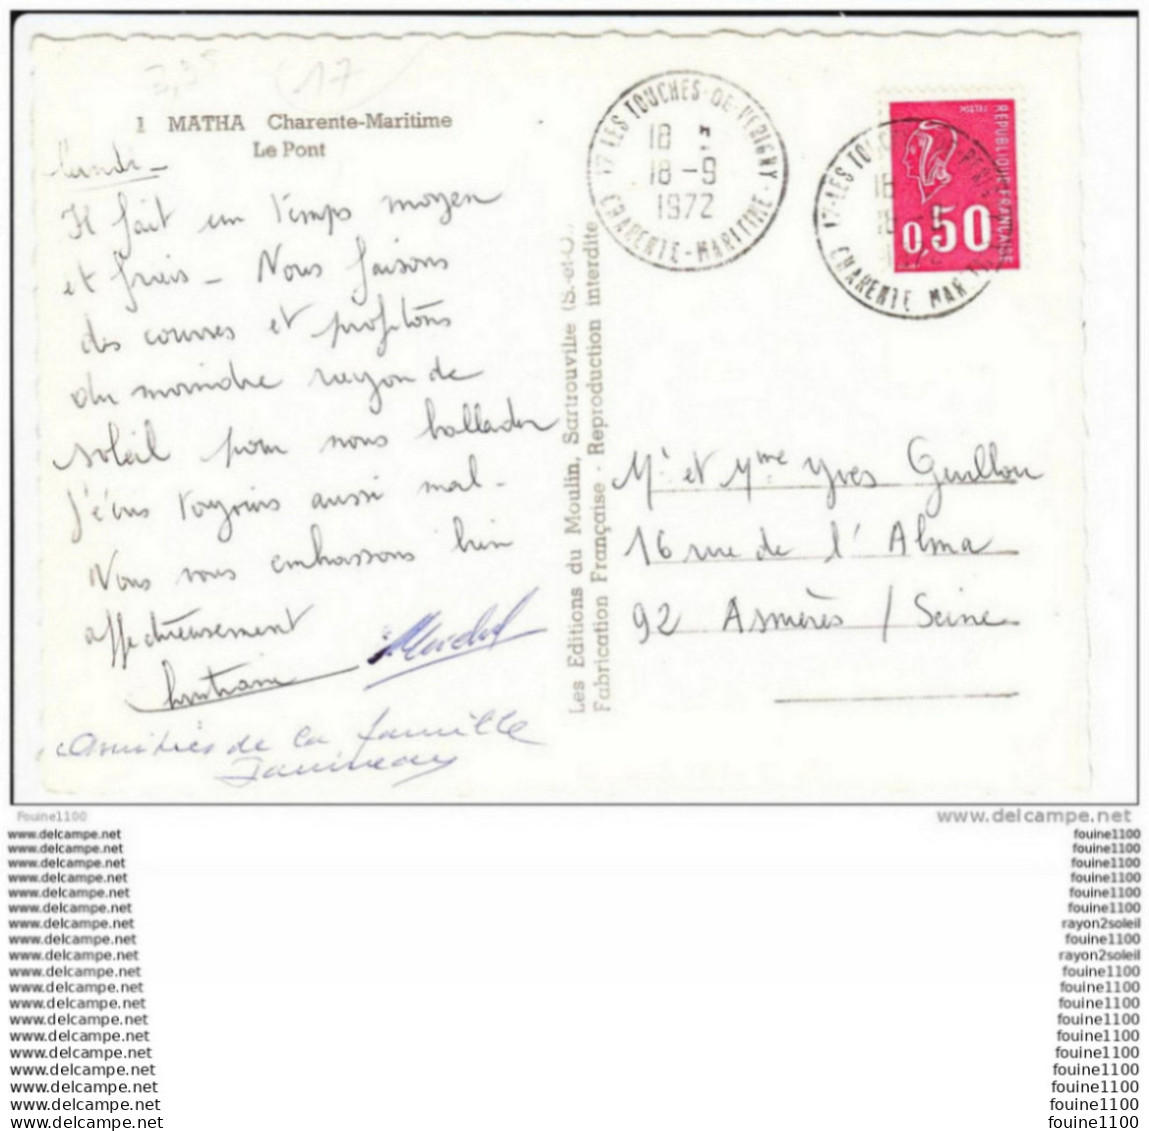 3,35
17
1 MATHA Charente-Maritime
Le Pont
Lundi -
Il fait un temps moyen
et frais - Nous faisons
des courses et profitons
du moindre rayon de
soleil pour nous ballader
J'écris toujours aussi mal -
Nous vous embrassons bien
affectueusement
Michel
Amitiés de la famille
Les Editions du Moulin, Sartrouville (S.-et-O.)
Fabrication Française - Reproduction interdite
17-LES TOUCHES-DE-PERIGNY-
18 H
18-9
1972
CHARENTE-MARITIME
17-LES TOUC PERI
18
18 -9
CHARENTE MAR
REPUBLIQUE FRANÇAISE
0,50
Mr et Mme Yves Guillou
16 rue de l'Alma
92 Asnières / Seine
Fouine1100
www.delcampe.net
www.delcampe.net fouine1100
www.delcampe.net fouine1100
www.delcampe.net fouine1100
www.delcampe.net fouine1100
www.delcampe.net fouine1100
www.delcampe.net fouine1100
www.delcampe.net rayon2soleil
www.delcampe.net fouine1100
www.delcampe.net rayon2soleil
www.delcampe.net fouine1100
www.delcampe.net fouine1100
www.delcampe.net fouine1100
www.delcampe.net fouine1100
www.delcampe.net fouine1100
www.delcampe.net fouine1100
www.delcampe.net fouine1100
www.delcampe.net fouine1100
www.delcampe.net fouine1100
www.delcampe.net fouine1100